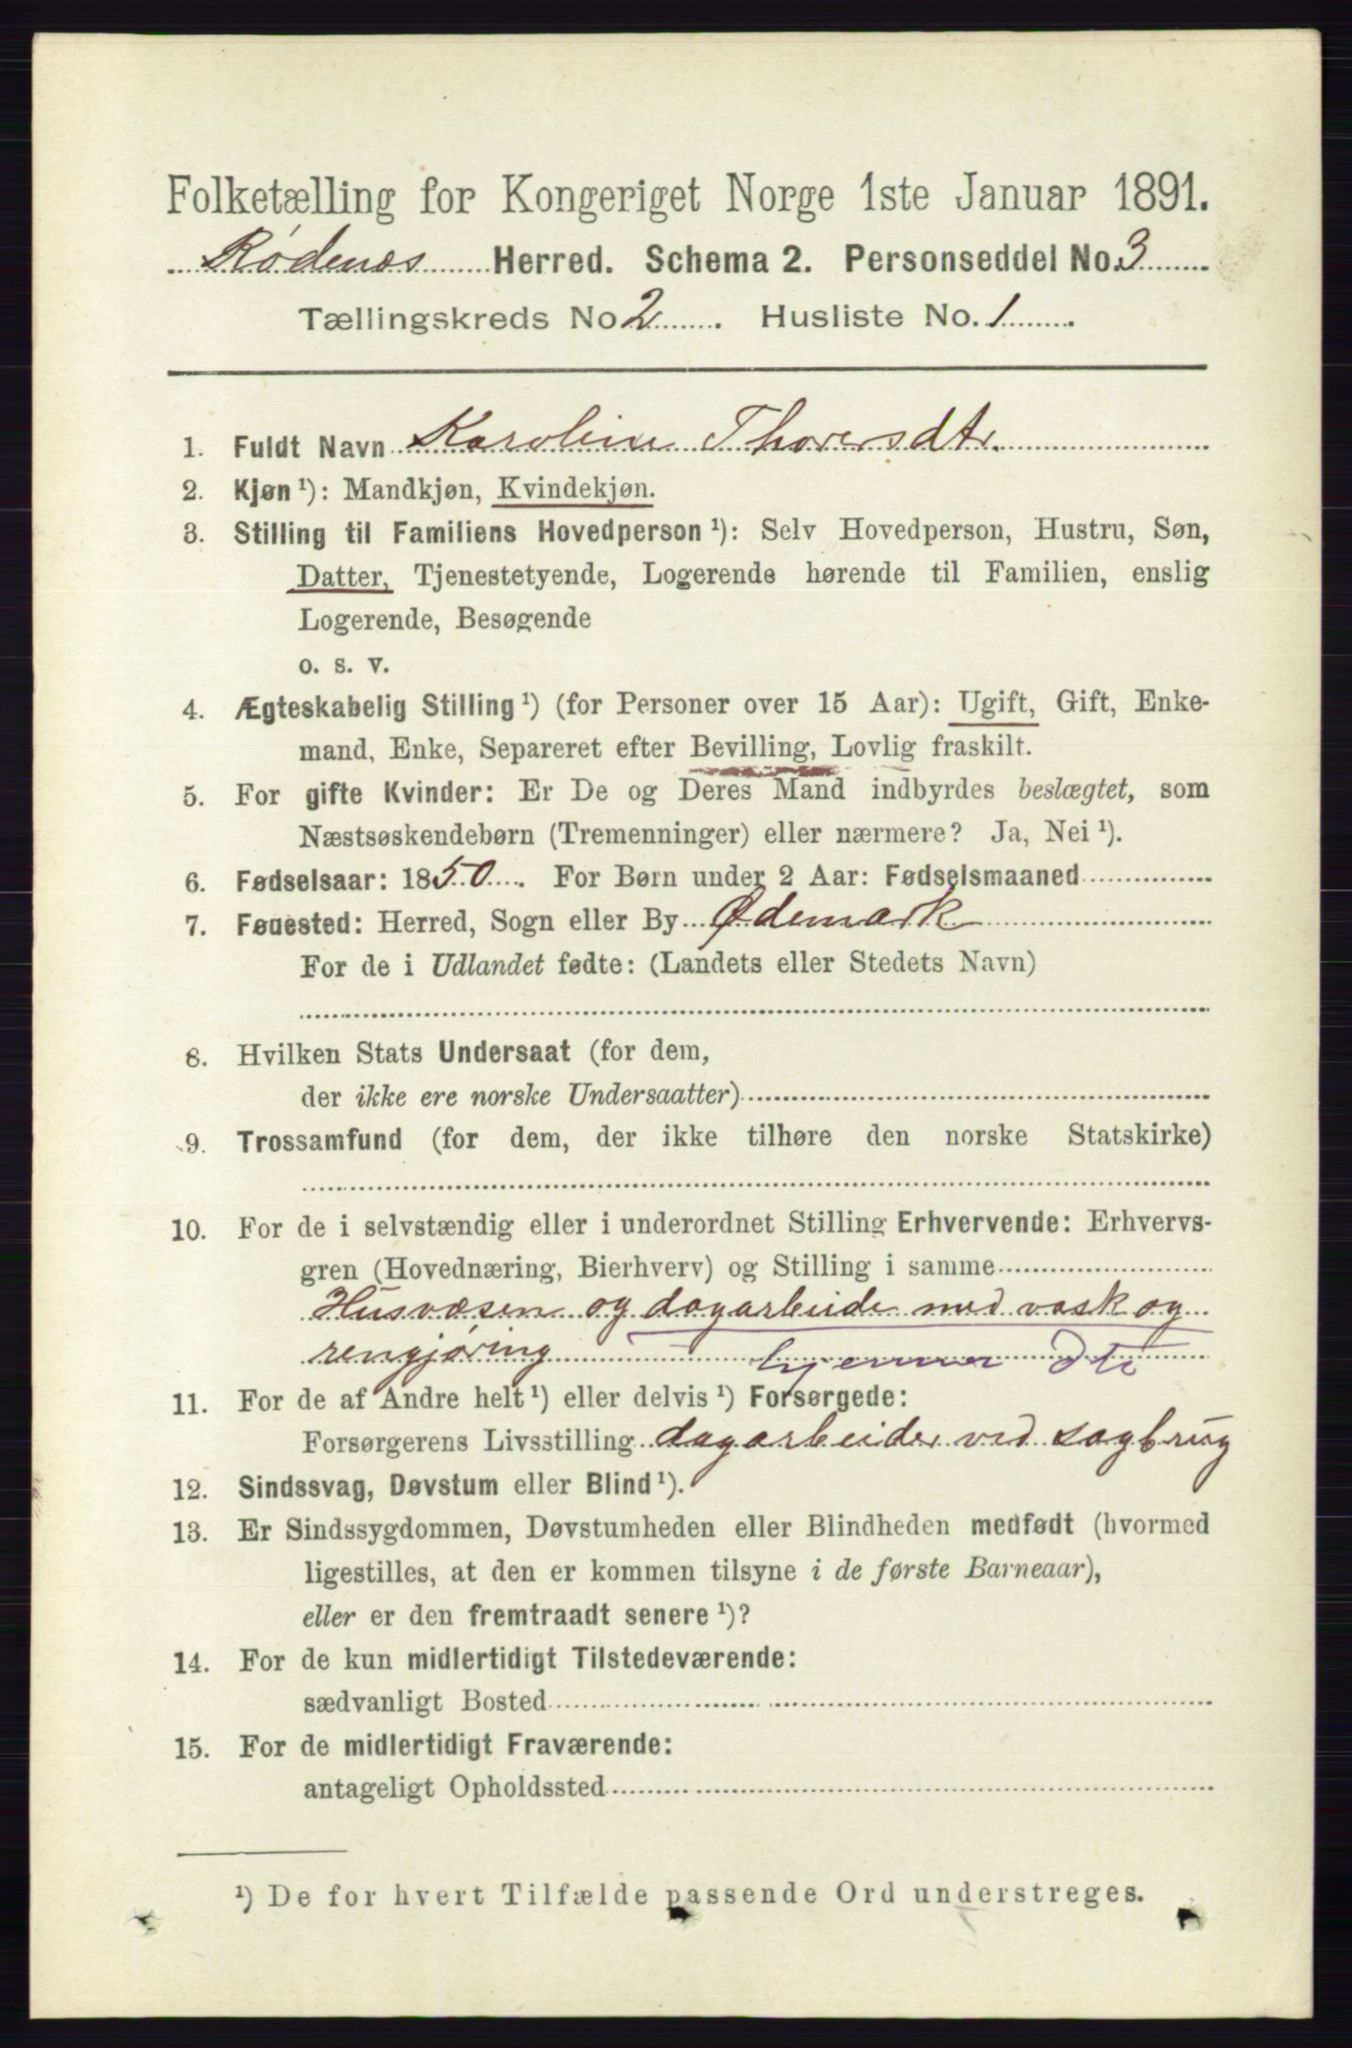 Folketælling for Kongeriget Norge 1ste Januar 1891.
Rødenes Herred. Schema 2. Personseddel No. 3
Tællingskreds No 2. Husliste No. 1.
1. Fuldt Navn Karoline Thoresdtr.
2. Kjøn ¹): Mandkjøn, Kvindekjøn.
3. Stilling til Familiens Hovedperson ¹): Selv Hovedperson, Hustru, Søn,
Datter, Tjenestetyende, Logerende hørende til Familien, enslig
Logerende, Besøgende
o. s. v.
4. Ægteskabelig Stilling ¹) (for Personer over 15 Aar): Ugift, Gift, Enke-
mand, Enke, Separeret efter Bevilling, Lovlig fraskilt.
5. For gifte Kvinder: Er De og Deres Mand indbyrdes beslægtet, som
Næstsøskendebørn (Tremenninger) eller nærmere? Ja, Nei ¹).
6. Fødselsaar: 1850. For Børn under 2 Aar: Fødselsmaaned
7. Føuested: Herred, Sogn eller By Ødemark
For de i Udlandet fødte: (Landets eller Stedets Navn)
8. Hvilken Stats Undersaat (for dem,
der ikke ere norske Undersaatter)
9. Trossamfund (for dem, der ikke tilhøre den norske Statskirke)
10. For de i selvstændig eller i underordnet Stilling Erhvervende: Erhvervs-
gren (Hovednæring, Bierhverv) og Stilling i samme
Husvæsen og dagarbeide med vask og
rengjøring hjemmev dtr
11. For de af Andre helt ¹) eller delvis ¹) Forsørgede:
Forsørgerens Livsstilling dagarbeider ved sagbrug
12. Sindssvag, Døvstum eller Blind ¹).
13. Er Sindssygdommen, Døvstumheden eller Blindheden medfødt (hvormed
ligestilles, at den er kommen tilsyne i de første Barneaar),
eller er den fremtraadt senere ¹)?
14. For de kun midlertidigt Tilstedeværende:
sædvanligt Bosted
15. For de midlertidigt Fraværende:
antageligt Opholdssted
¹) De for hvert Tilfælde passende Ord understreges.